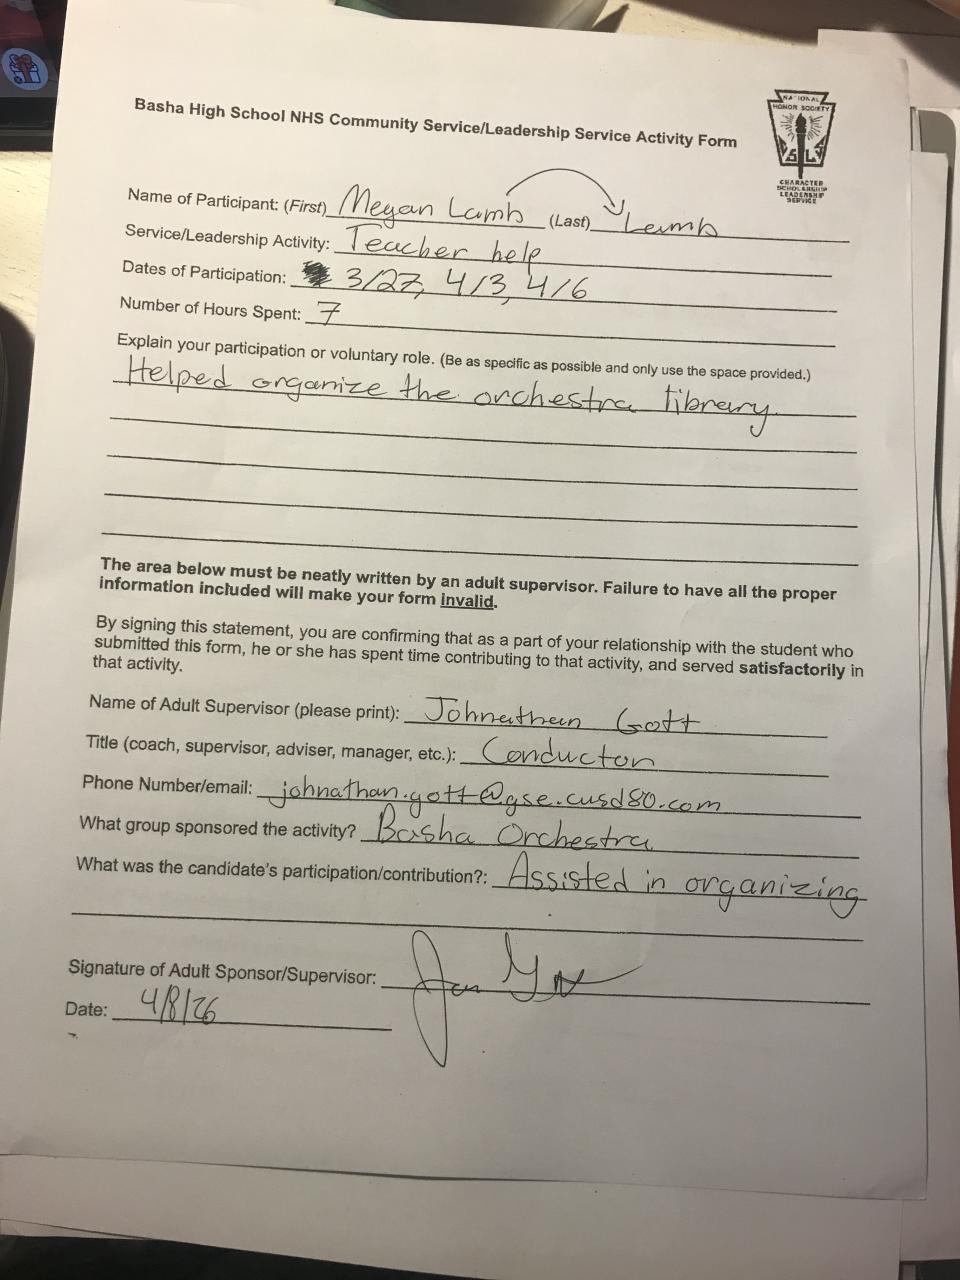 Basha High School NHS Community Service/Leadership Service Activity Form
NATIONAL
HONOR SOCIETY
CHARACTER
SCHOLARSHIP
LEADERSHIP
SERVICE
Name of Participant: (First) Megan Lamb (Last) Lamb
Service/Leadership Activity: Teacher help
Dates of Participation: 3/27, 4/3, 4/6
Number of Hours Spent: 7
Explain your participation or voluntary role. (Be as specific as possible and only use the space provided.)
Helped organize the orchestra library
The area below must be neatly written by an adult supervisor. Failure to have all the proper
information included will make your form invalid.
By signing this statement, you are confirming that as a part of your relationship with the student who
submitted this form, he or she has spent time contributing to that activity, and served satisfactorily in
that activity.
Name of Adult Supervisor (please print): Johnathan Gott
Title (coach, supervisor, adviser, manager, etc.): Conductor
Phone Number/email: johnathan.gott@gse.cusd80.com
What group sponsored the activity? Basha Orchestra
What was the candidate's participation/contribution?: Assisted in organizing
Signature of Adult Sponsor/Supervisor:
Date: 4/8/26